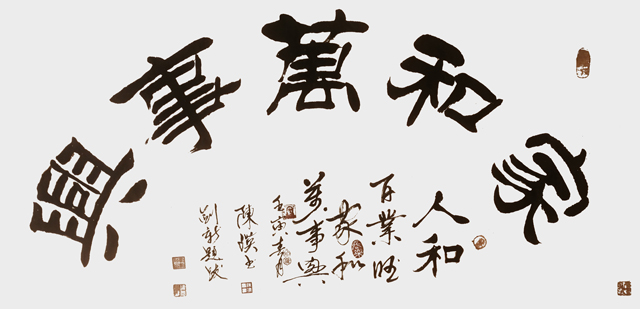 家和萬事興
人和
百業旺
家和
萬事興
壬寅春月
陳漢书
題跋